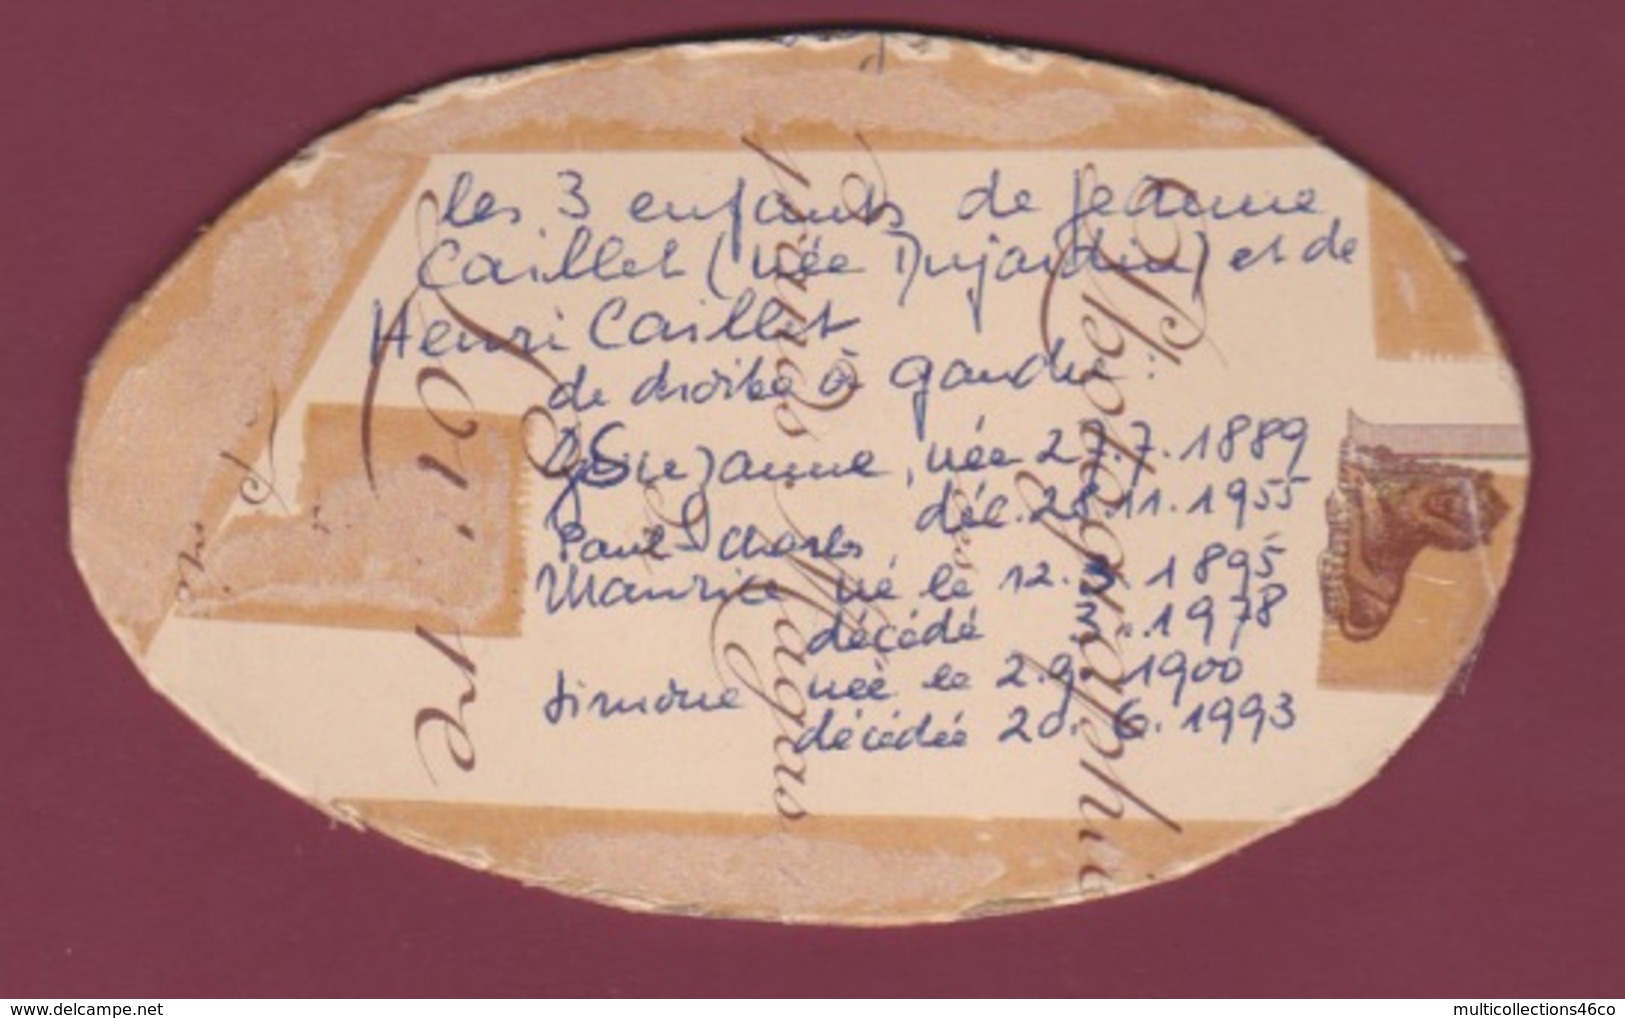 les 3 enfants de Jeanne
Caillet (née Dujardin) et de
Henri Caillet
de droite à gauche :
Suzanne, née 27.7.1889
déc. 28.11.1955
Paul-Charles
Maurice né le 12.3.1895
décédé 3.1978
Simone née le 2.9.1900
décédée 20.6.1993
Photographie
des
grands Magasins
du
Louvre
www.delcampe.net
multicollections46co